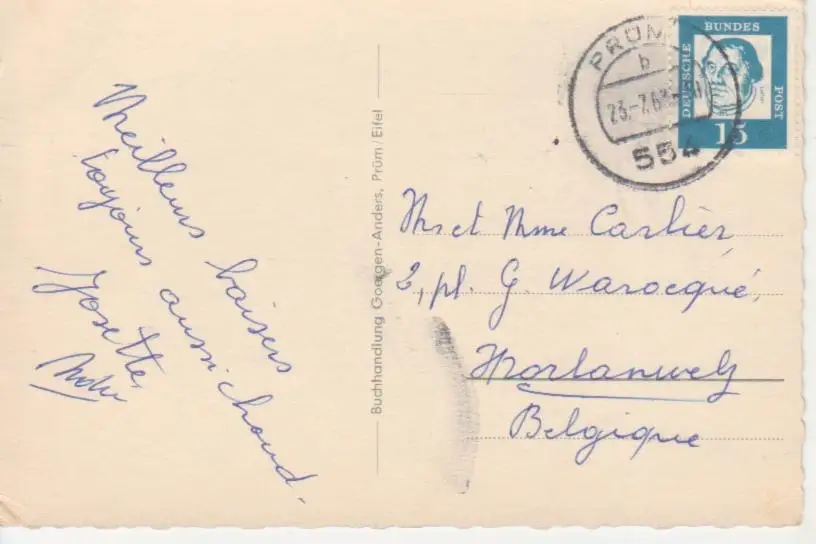 Meilleurs baisers
toujours aussi chaud.
Josette
Buchhandlung Goergen-Anders, Prüm/Eifel
PRÜM
b
23.-7.6
554
DEUTSCHE
BUNDES
POST
15
Mr et Mme Carlier,
2, pl. G. Warocqué,
Morlanwelz
Belgique